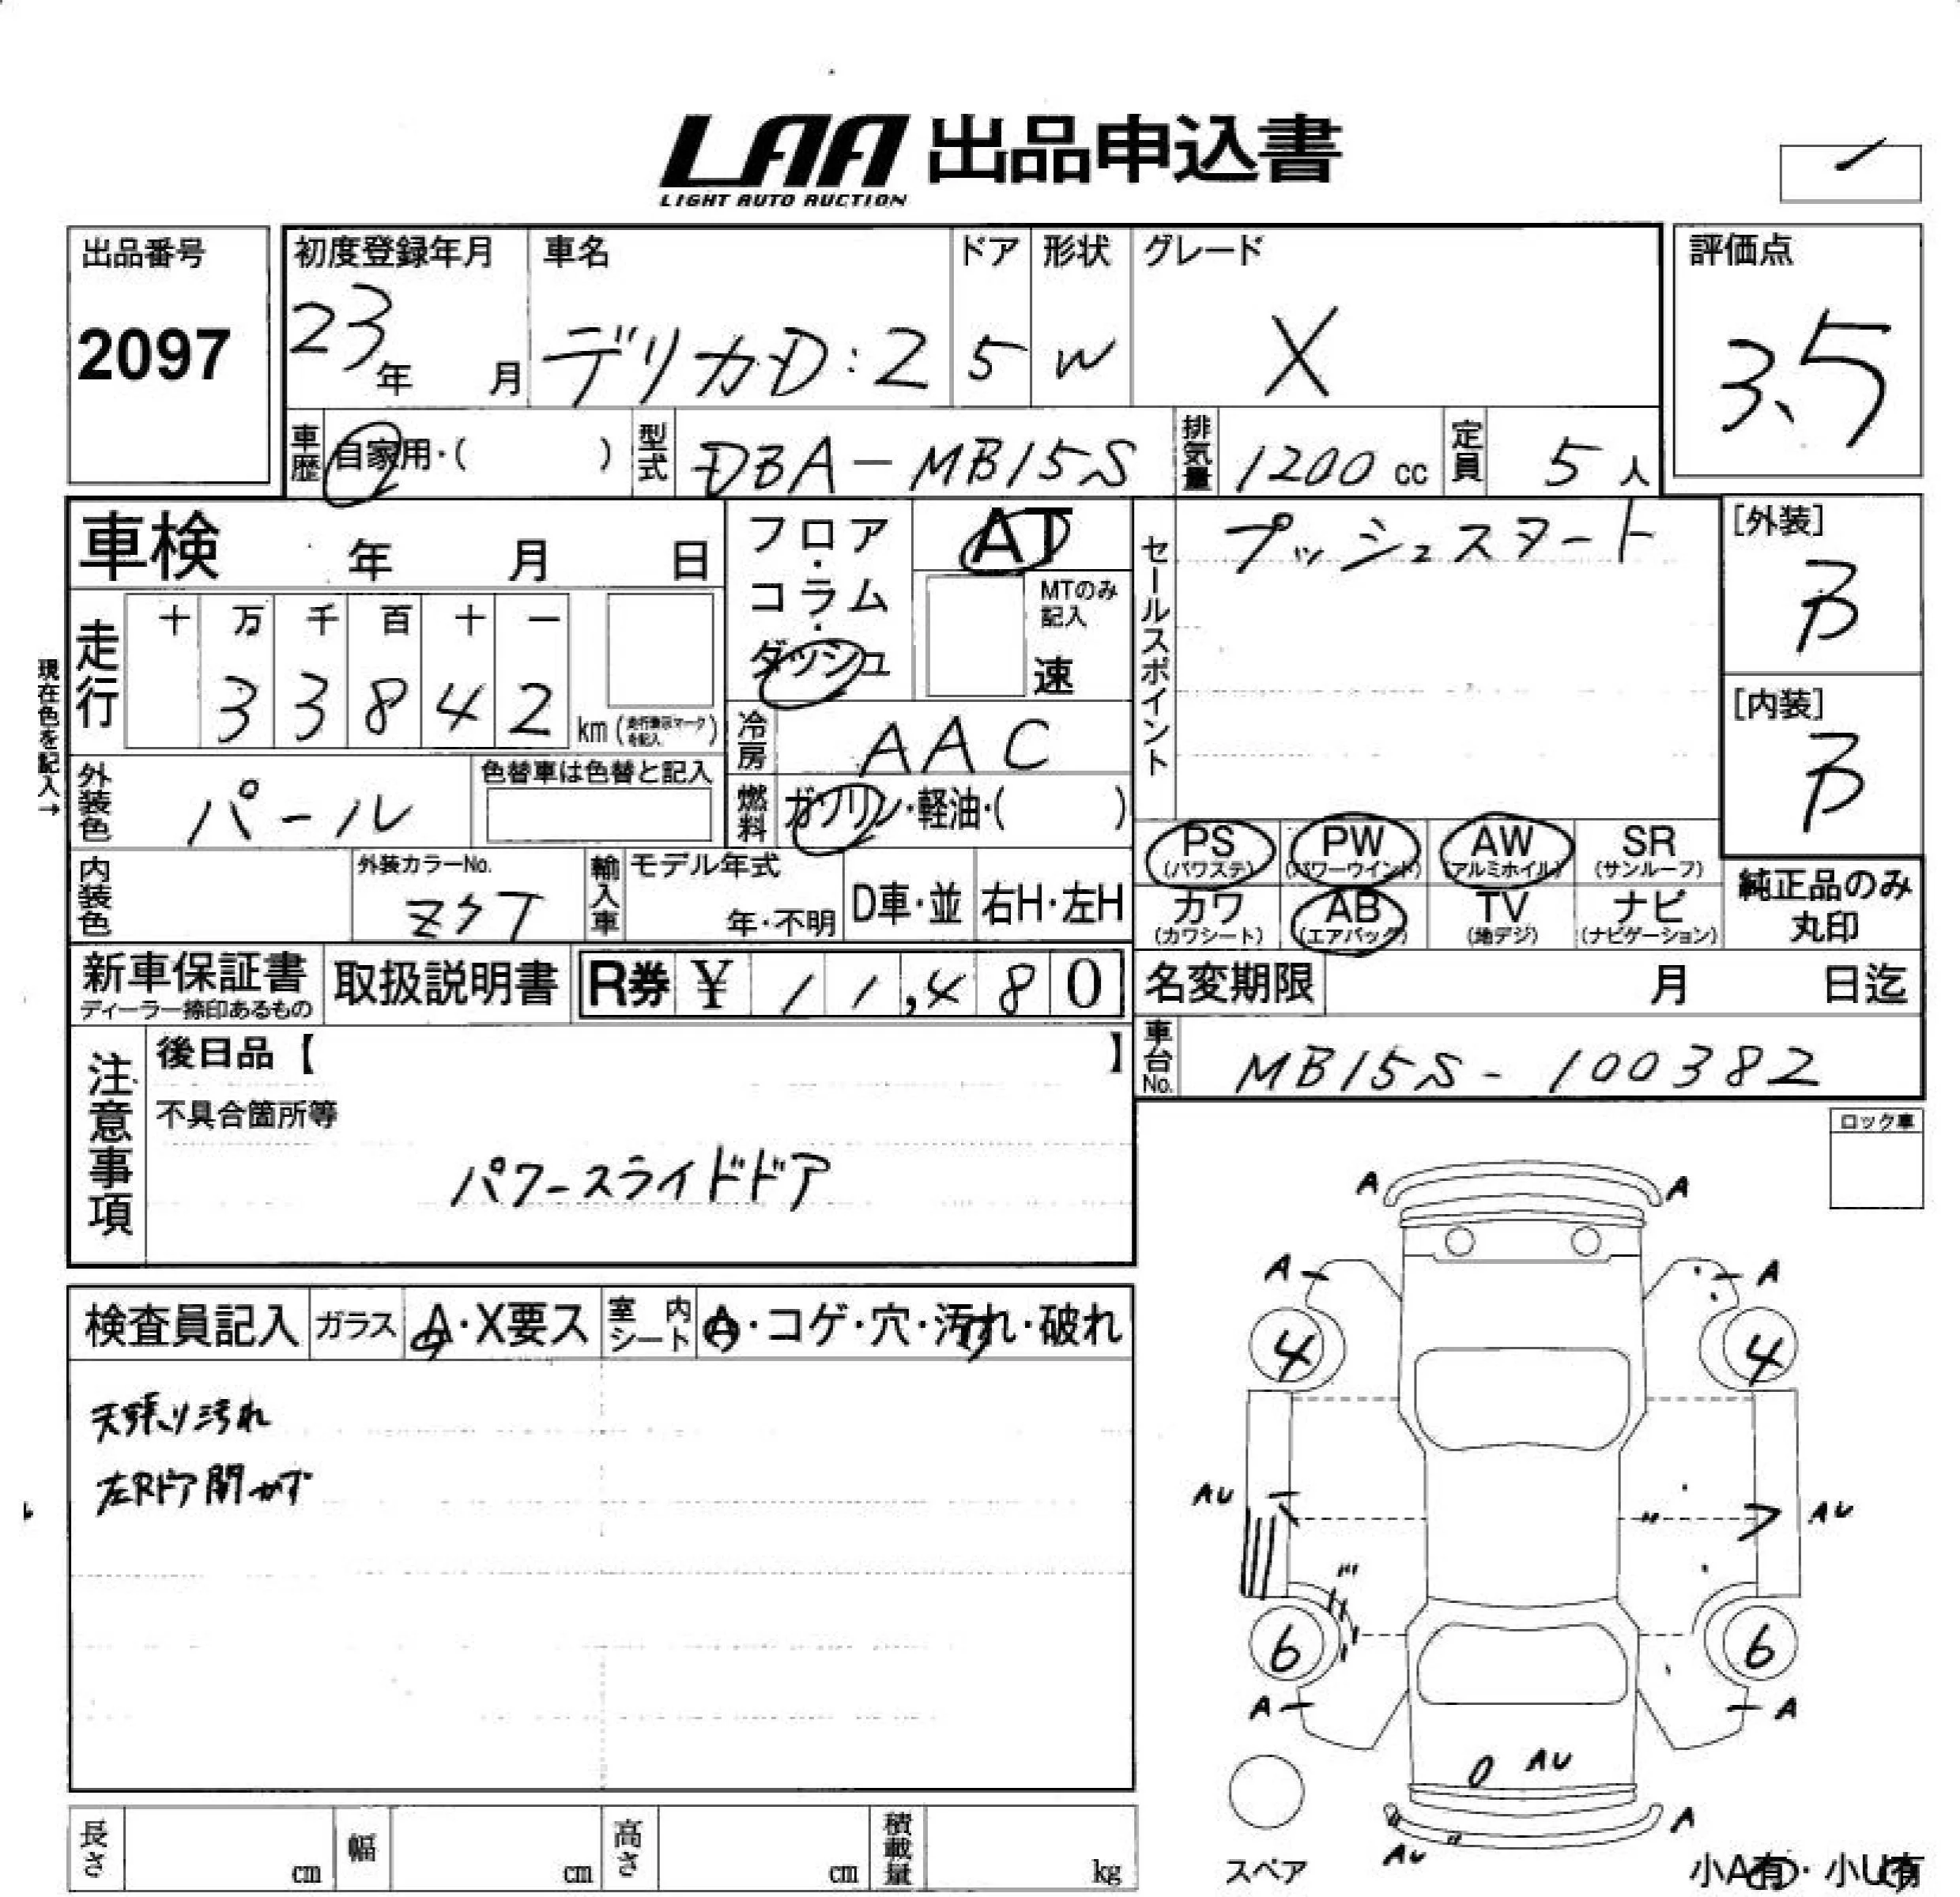 LAA 出品申込書
LIGHT AUTO AUCTION
出品番号
2097
初度登録年月
23年 月
車名
デリカD:2
ドア
5
形状
W
グレード
X
評価点
3.5
車歴 自家用・( )
型式 DBA-MB15S
排気量 1200 cc
定員 5 人
車検 年 月 日
フロア・コラム・ダッシュ
AT
MTのみ記入
速
セールスポイント
プッシュスタート
[外装]
B
[内装]
B
現在色を記入→
走行
十 万 千 百 十 一
3 3 8 4 2
km (走行表示マークを記入)
冷房 AAC
外装色 パール
色替車は色替と記入
燃料 ガソリン・軽油・( )
PS (パワステ)
PW (パワーウインド)
AW (アルミホイル)
SR (サンルーフ)
カワ (カワシート)
AB (エアバッグ)
TV (地デジ)
ナビ (ナビゲーション)
純正品のみ丸印
内装色
外装カラーNo.
Z7T
輸入車
モデル年式
年・不明
D車・並
右H・左H
新車保証書
ディーラー捺印あるもの
取扱説明書
R券 ¥ 11,480
名変期限 月 日迄
車台No. MB15S-100382
注意事項
後日品【 】
不具合箇所等
パワースライドドア
ロック車
検査員記入
ガラス A・X要ス
室内シート A・コゲ・穴・汚れ・破れ
天張り汚れ
左Rドア開かず
A A
A A
4 4
AU AU
6 6
A A
AU
A
AU
スペア
小A有・小U有
長さ cm
幅 cm
高さ cm
積載量 kg